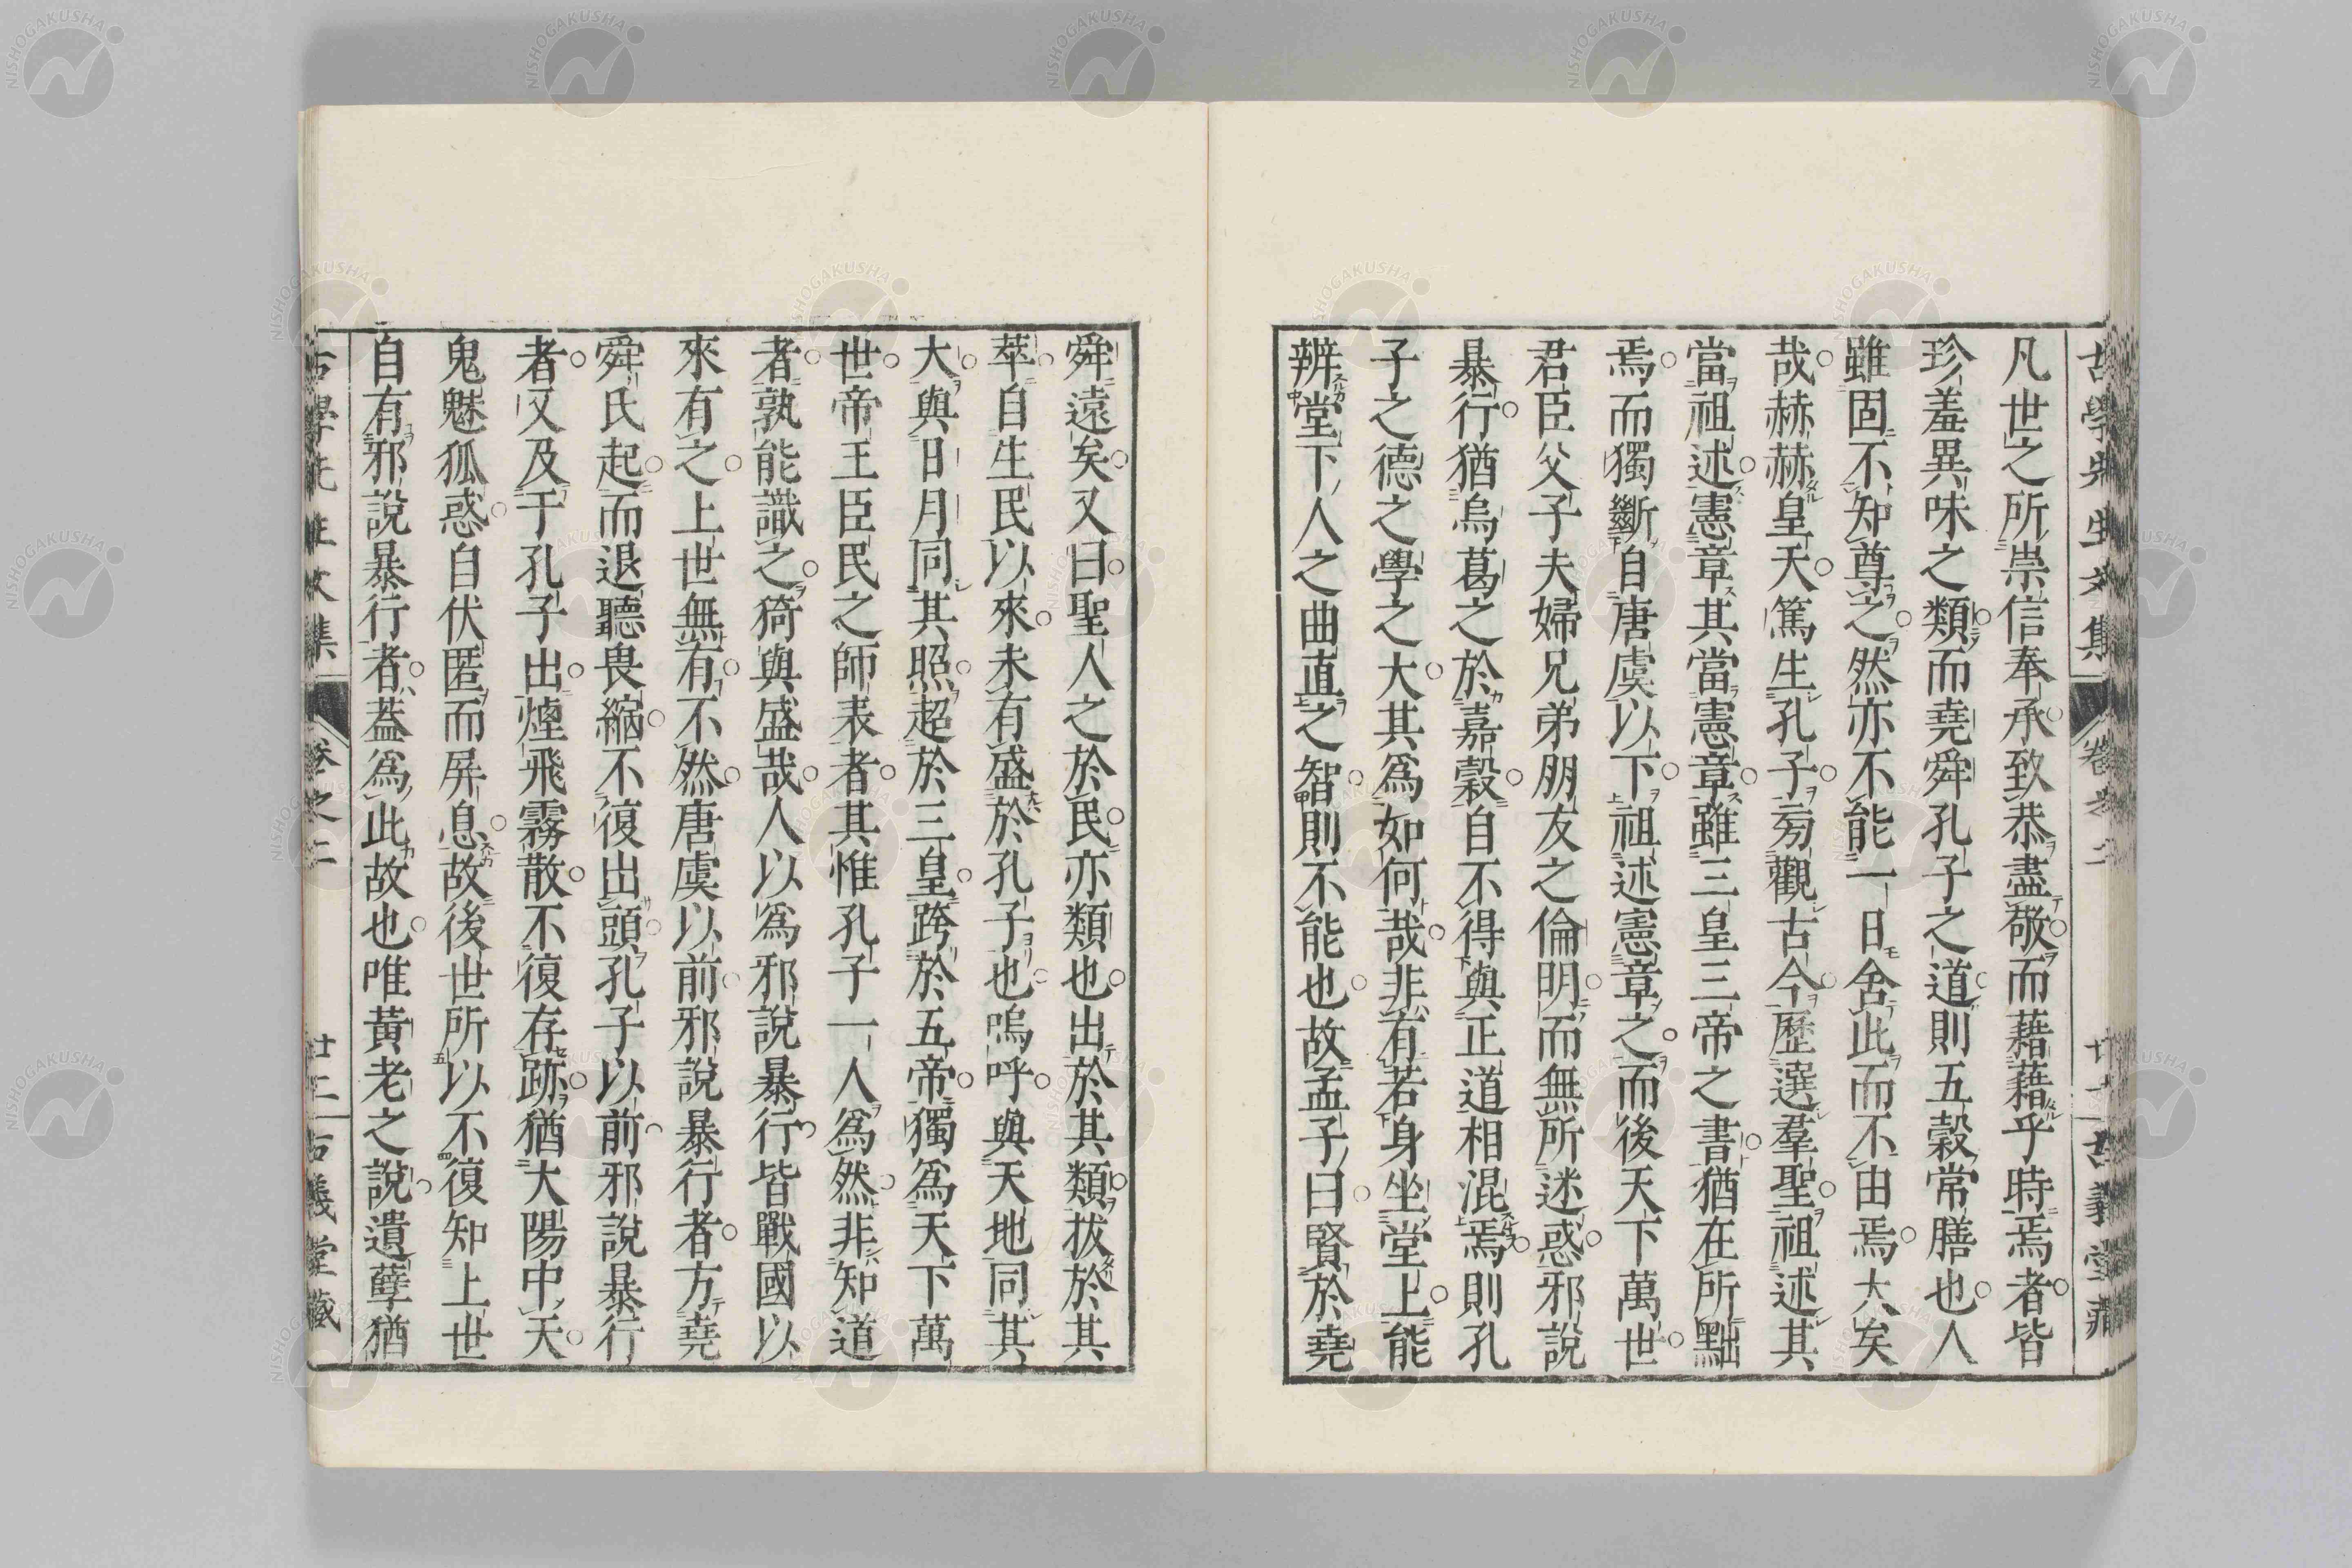 古學先生文集 卷之二 古義堂藏
凡世之所崇信奉承致恭盡敬而藉藉乎時焉者皆
珍羞異味之類而堯舜孔子之道則五穀常膳也人
雖固不知尊之然亦不能一日舍此而不由焉大矣
哉赫赫皇天篤生孔子旁觀古今歷選羣聖祖述其
當祖述憲章其當憲章雖三皇三帝之書猶在所黜
焉而獨斷自唐虞以下祖述憲章之而後天下萬世
君臣父子夫婦兄弟朋友之倫明而無所迷惑邪說
暴行猶烏葛之於嘉穀自不得與正道相混焉則孔
子之德之學之大其爲如何哉非有若身坐堂上能
辨堂下人之曲直之智則不能也故孟子曰賢於堯
舜遠矣又曰聖人之於民亦類也出於其類拔於其
萃自生民以來未有盛於孔子也嗚呼與天地同其
大與日月同其照超於三皇跨於五帝獨爲天下萬
世帝王臣民之師表者其惟孔子一人爲然非知道
者孰能識之猗與盛哉人以爲邪說暴行皆戰國以
來有之上世無有不然唐虞以前邪說暴行者方堯
舜氏起而退聽畏縮不復出頭孔子以前邪說暴行
者又及于孔子出煙飛霧散不復存跡猶大陽中天
鬼魅狐惑自伏匿而屏息故後世所以不復知上世
自有邪說暴行者蓋爲此故也唯黃老之說遺孽猶
古學先生文集 卷之二 廿二 古義堂藏
NISHOGAKUSHA